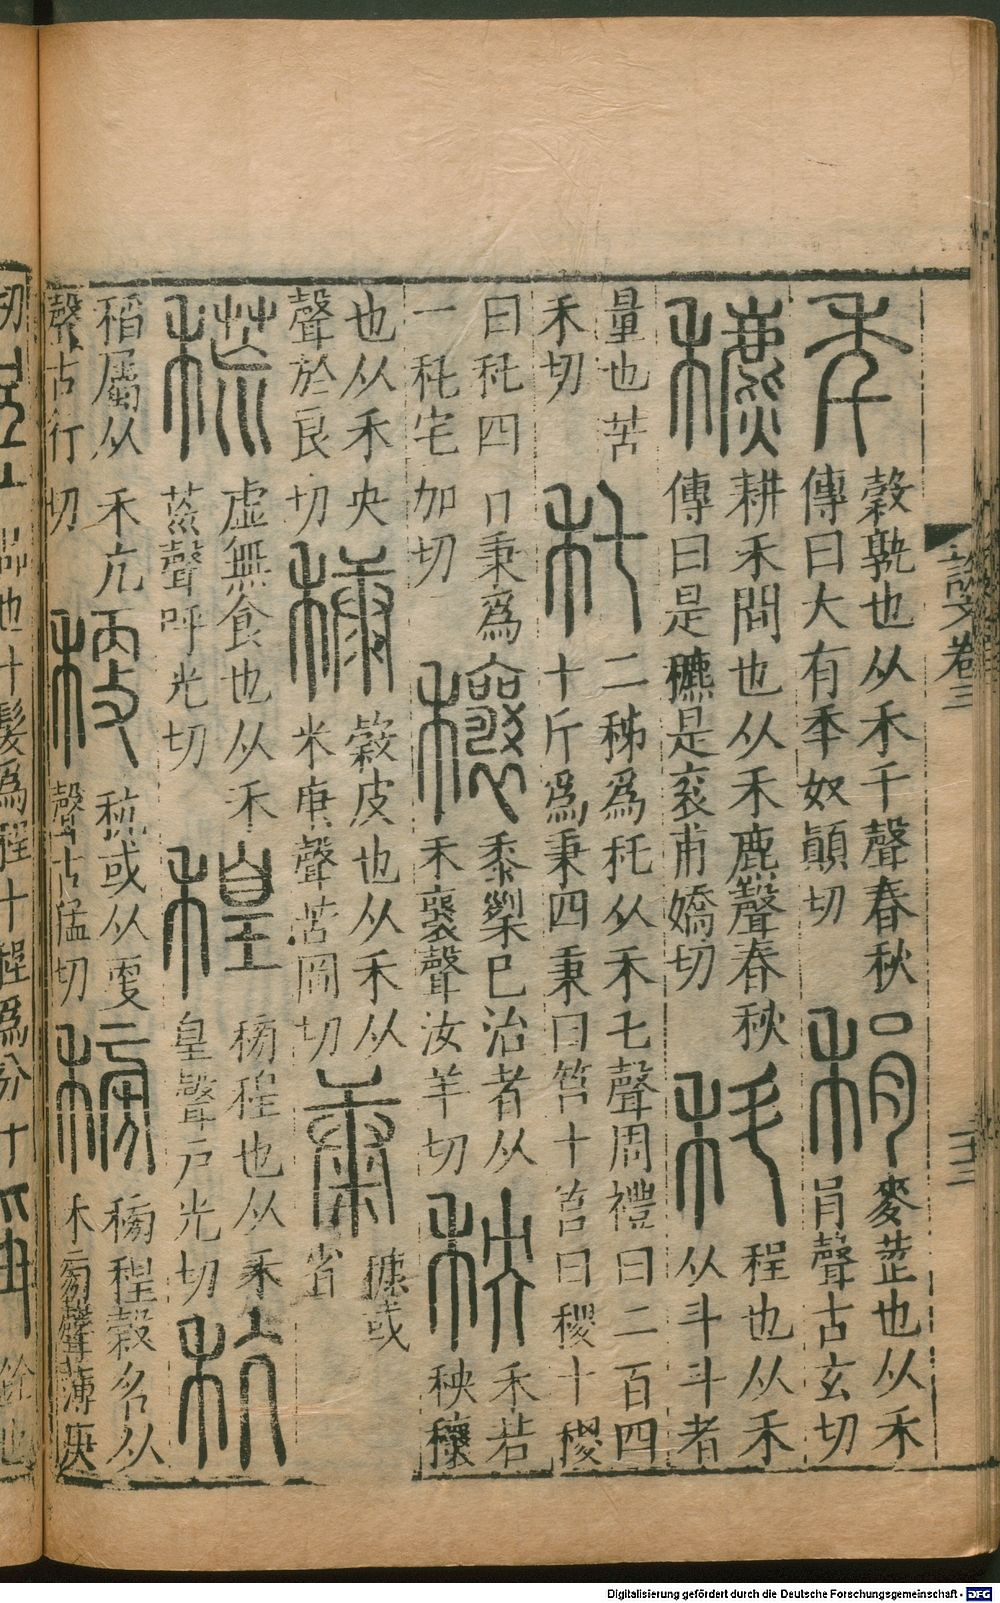 秊
穀孰也从禾千聲春秋
傳曰大有秊奴顚切
䅌
麥莖也从禾
肙聲古玄切
穮
耕禾間也从禾麃聲春秋
傳曰是穮是衮甫嬌切
科
程也从禾
从斗斗者
量也苦
禾切
秅
二秭爲秅从禾乇聲周禮曰二百四
十斤爲秉四秉曰筥十筥曰稯十稯
曰秅四日秉爲
一秅宅加切
穰
黍𥞥已治者从
禾襄聲汝羊切
秧
禾若
秧穰
也从禾央
聲於良切
穅
穀皮也从禾从
米庚聲苦岡切
康
穅或
省
䆲
虛無食也从禾
巟聲呼光切
䅣
䅭程也从禾
皇聲戶光切
秔
稻屬从禾亢
聲古行切
稉
秔或从更
聲古猛切
䅭
䅭程穀名从
禾㫄聲薄庚
說文卷三
二十三
Digitalisierung gefördert durch die Deutsche Forschungsgemeinschaft - DFG